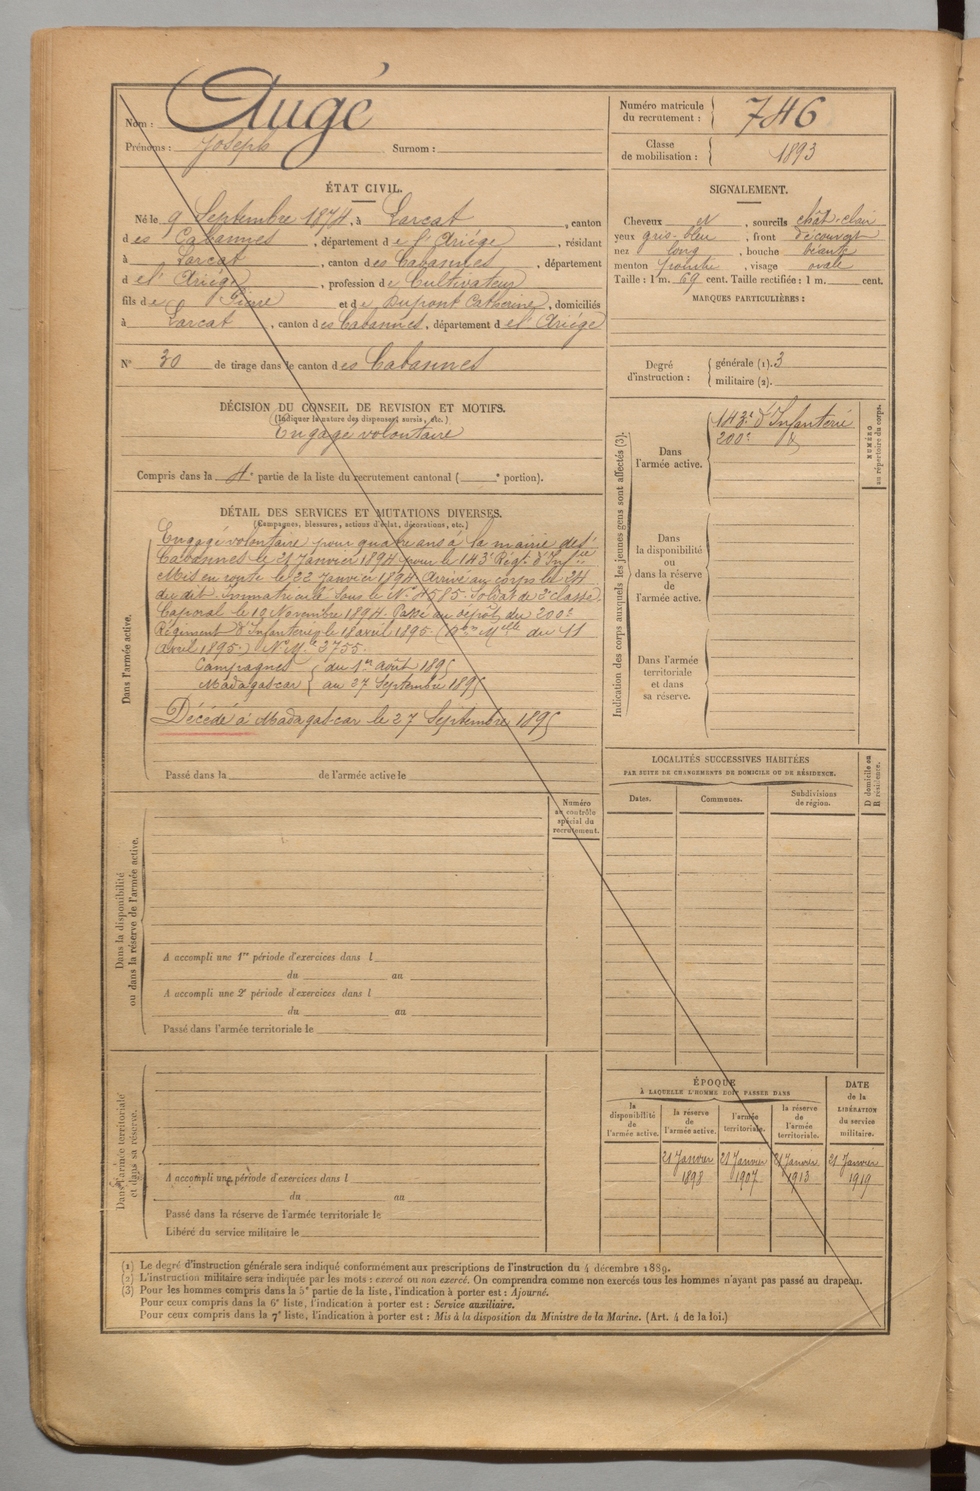 Nom : Augé
Prénoms : Joseph Surnom :
Numéro matricule
du recrutement : 746
Classe
de mobilisation : 1893
ÉTAT CIVIL.
Né le 9 Septembre 1874, à Larcat, canton
des Cabannes, département de l'Ariége, résidant
à Larcat, canton des Cabannes, département
de l'Ariége, profession de Cultivateur
fils de Pierre et de Dupont Catherine, domiciliés
à Larcat, canton des Cabannes, département de l'Ariége
N° 30 de tirage dans le canton des Cabannes
SIGNALEMENT.
Cheveux , sourcils chât-clair
yeux gris-bleu, front découvert
nez long, bouche béante
menton pointu, visage ovale
Taille : 1 m. 69 cent. Taille rectifiée : 1 m. cent.
MARQUES PARTICULIÈRES :
Degré
d'instruction :
générale (1). 3
militaire (2).
DÉCISION DU CONSEIL DE REVISION ET MOTIFS.
(Indiquer la nature des dispenses, sursis, etc.)
Engagé volontaire
Compris dans la 4e partie de la liste du recrutement cantonal ( e portion).
DÉTAIL DES SERVICES ET MUTATIONS DIVERSES.
(Campagnes, blessures, actions d'éclat, décorations, etc.)
Dans l'armée active.
Engagé volontaire pour quatre ans à la mairie des
Cabannes le 21 Janvier 1894 pour le 143e Régt d'Infrie
Mis en route le 22 Janvier 1894 Arrivé au corps le 24
du dit. Immatriculé sous le N° 4585. Soldat de 2e classe.
Caporal le 10 Novembre 1894. Passé au dépôt du 200e
Régiment d'Infanterie le 18 avril 1895. ( du 11
avril 1895.) N° Mle 3755.
Campagnes { du 1er août 1895
Madagascar { au 27 Septembre 1895
Décédé à Madagascar le 27 Septembre 1895
Passé dans la de l'armée active le
Indication des corps auxquels les jeunes gens sont affectés (3).
Dans
l'armée active.
143e d'Infanterie
200e d°
NUMÉRO
au répertoire du corps.
Dans
la disponibilité
ou
dans la réserve
de
l'armée active.
Dans l'armée
territoriale
et dans
sa réserve.
LOCALITÉS SUCCESSIVES HABITÉES
PAR SUITE DE CHANGEMENTS DE DOMICILE OU DE RÉSIDENCE.
Dates.
Communes.
Subdivisions
de région.
D domicile ou
R résidence.
Numéro
au contrôle
spécial du
recrutement.
Dans la disponibilité
ou dans la réserve de l'armée active.
A accompli une 1re période d'exercices dans l
du au
A accompli une 2e période d'exercices dans l
du au
Passé dans l'armée territoriale le
Dans l'armée territoriale
et dans sa réserve.
A accompli une période d'exercices dans l
du au
Passé dans la réserve de l'armée territoriale le
Libéré du service militaire le
ÉPOQUE
À LAQUELLE L'HOMME DOIT PASSER DANS
la
disponibilité
de
l'armée active.
la réserve
de
l'armée active.
l'armée
territoriale.
la réserve
de
l'armée
territoriale.
DATE
de la
LIBÉRATION
du service
militaire.
21 Janvier 21 Janvier 21 Janvier 21 Janvier
1898 1907 1913 1919
(1) Le degré d'instruction générale sera indiqué conformément aux prescriptions de l'instruction du 4 décembre 1889.
(2) L'instruction militaire sera indiquée par les mots : exercé ou non exercé. On comprendra comme non exercés tous les hommes n'ayant pas passé au drapeau.
(3) Pour les hommes compris dans la 5e partie de la liste, l'indication à porter est : Ajourné.
Pour ceux compris dans la 6e liste, l'indication à porter est : Service auxiliaire.
Pour ceux compris dans la 7e liste, l'indication à porter est : Mis à la disposition du Ministre de la Marine. (Art. 4 de la loi.)